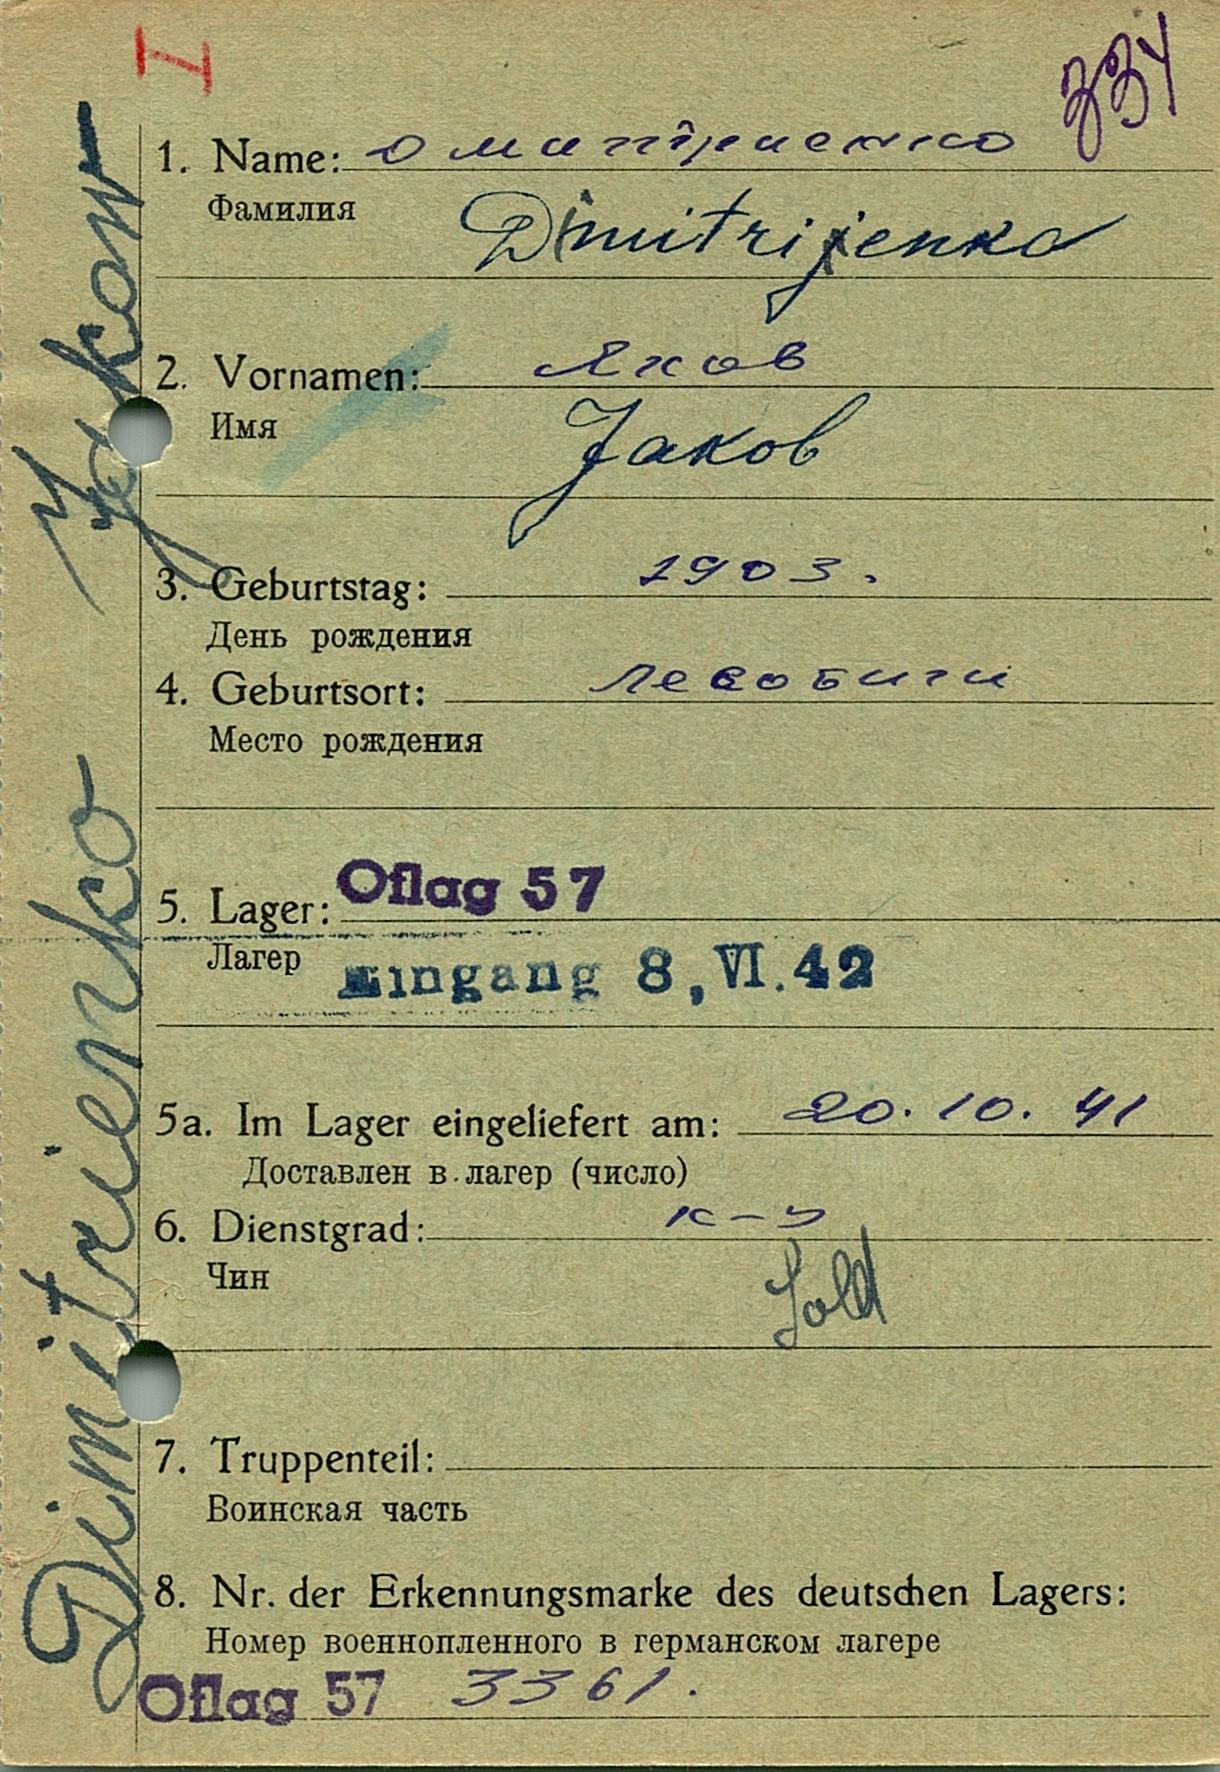 I
334
1. Name: Омитриенко
Фамилия
Dimitrijenko
2. Vornamen: Яков
Имя
Jakob
3. Geburtstag: 1903.
День рождения
4. Geburtsort:
Место рождения
5. Lager: Oflag 57
Лагер
Eingang 8, VI. 42
5a. Im Lager eingeliefert am: 20.10.41
Доставлен в лагер (число)
6. Dienstgrad: к-ц
Чин
Sold
7. Truppenteil:
Воинская часть
8. Nr. der Erkennungsmarke des deutschen Lagers:
Номер военнопленного в германском лагере
Oflag 57 3361.
Dimitrienko Jakow